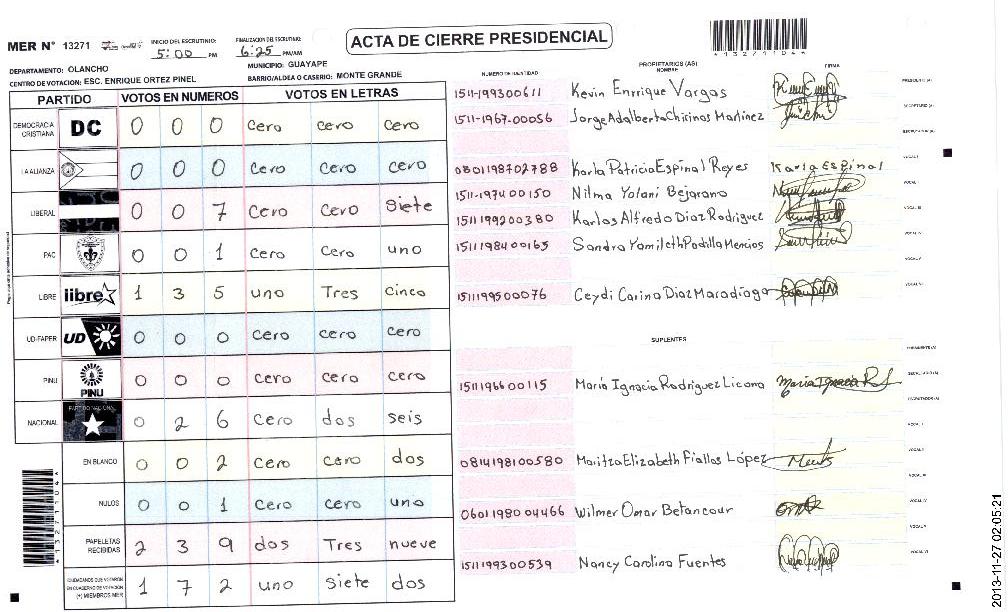 MER N° 13271
INICIO DEL ESCRUTINIO: 5:00 PM
FINALIZACION DEL ESCRUTINIO: 6:25 PM/AM
ACTA DE CIERRE PRESIDENCIAL
4132711044
DEPARTAMENTO: OLANCHO
MUNICIPIO: GUAYAPE
CENTRO DE VOTACION: ESC. ENRIQUE ORTEZ PINEL
BARRIO/ALDEA O CASERIO: MONTE GRANDE
PARTIDO VOTOS EN NUMEROS VOTOS EN LETRAS
DEMOCRACIA CRISTIANA DC 0 0 0 Cero cero cero
LA ALIANZA 0 0 0 Cero cero cero
LIBERAL 0 0 7 Cero Cero Siete
PAC 0 0 1 Cero Cero uno
LIBRE libre 1 3 5 uno Tres Cinco
UD-FAPER UD 0 0 0 Cero cero cero
PINU PINU 0 0 0 Cero cero cero
NACIONAL PARTIDO NACIONAL 0 2 6 Cero dos seis
EN BLANCO 0 0 2 Cero cero dos
NULOS 0 0 1 Cero Cero uno
PAPELETAS RECIBIDAS 2 3 9 dos Tres nueve
CIUDADANOS QUE VOTARON EN CUADERNO DE VOTACION (+) MIEMBROS MER 1 7 2 uno Siete dos
NUMERO DE IDENTIDAD PROPIETARIOS (AS) NOMBRE FIRMA
1511-199300611 Kevin Enrrique Vargas PRESIDENTE (A)
1511-1967-00056 Jorge Adalberto Chirinos Martinez SECRETARIO (A)
ESCRUTADOR (A)
0801198702788 Karla Patricia Espinal Reyes Karla Espinal VOCAL I
1511-1974 00150 Nilma Yolani Bejarano VOCAL II
1511199200380 Karlos Alfredo Diaz Rodriguez VOCAL III
1511198400165 Sandra Yamileth Padilla Mencios VOCAL IV
VOCAL V
1511199500076 Ceydi Carina Diaz Maradiaga VOCAL VI
SUPLENTES
PRESIDENTE (A)
1511196600115 María Ignacia Rodriguez Licona Maria Ignacia R SECRETARIO (A)
ESCRUTADOR (A)
VOCAL I
0814198100580 Maritza Elizabeth Fiallos López VOCAL II
VOCAL III
0601198004466 Wilmer Omar Betancour VOCAL IV
VOCAL V
1511199300539 Nancy Carolina Fuentes VOCAL VI
4132711044
2013-11-27 02:05:21